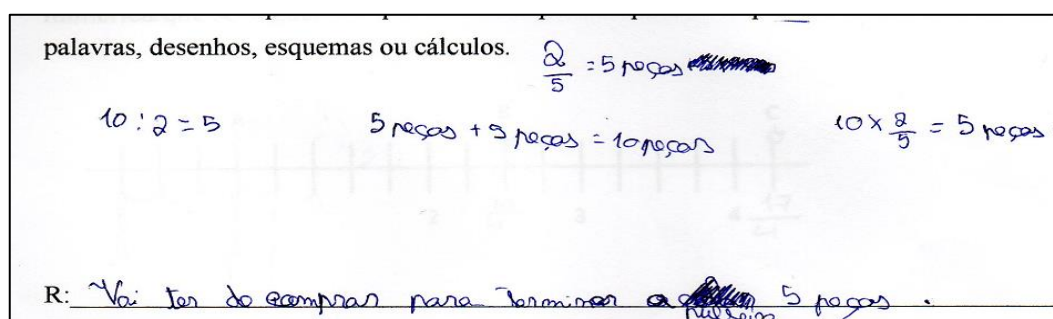 palavras, desenhos, esquemas ou cálculos.
2/5 = 5 peças
10 : 2 = 5
5 peças + 5 peças = 10 peças
10 x 2/5 = 5 peças
R: Vai ter de comprar para terminar a pulseira 5 peças.